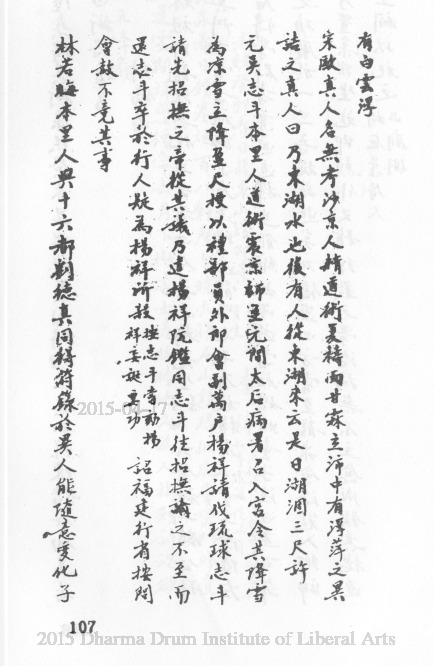 有白雲浮
宋歐真人名無考沙京人精道術夏禱雨甘霖立沛中有浮萍之異
詰之真人曰乃東湖水也後有人從東湖來云是日湖涸三尺許
元吳志斗本里人道術震京師至元間太后病暑召入宮令其降雪
為凉雪立降盈尺授以禮部員外郎會副萬户楊祥請伐琉球志斗
請先招撫之帝從其議乃遣楊祥阮鑑同志斗往招撫諭之不至而
還志斗卒於行人疑為楊祥所殺按志斗常劾楊祥妄誕要功詔福建行省按問
會赦不竟其事
林若晦本里人與十六都劉德真同得符籙於異人能隨意變化子
2015-04-17
107
2015 Dharma Drum Institute of Liberal Arts